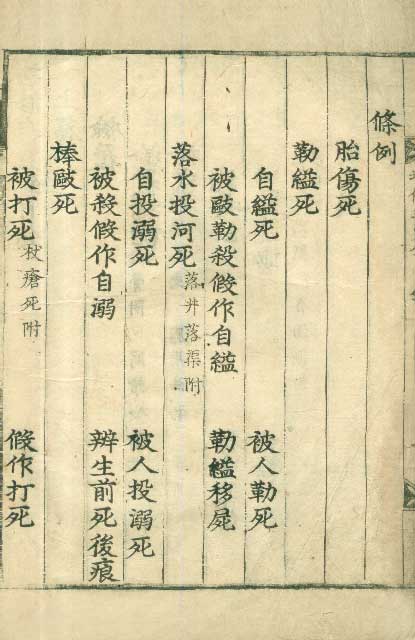 條例
胎傷死
勒縊死
自縊死 被人勒死
被毆勒殺假作自縊 勒縊移屍
落水投河死 落井落渠附
自投溺死 被人投溺死
被殺假作自溺 辨生前死後痕
棒毆死
被打死 杖瘡死附 假作打死